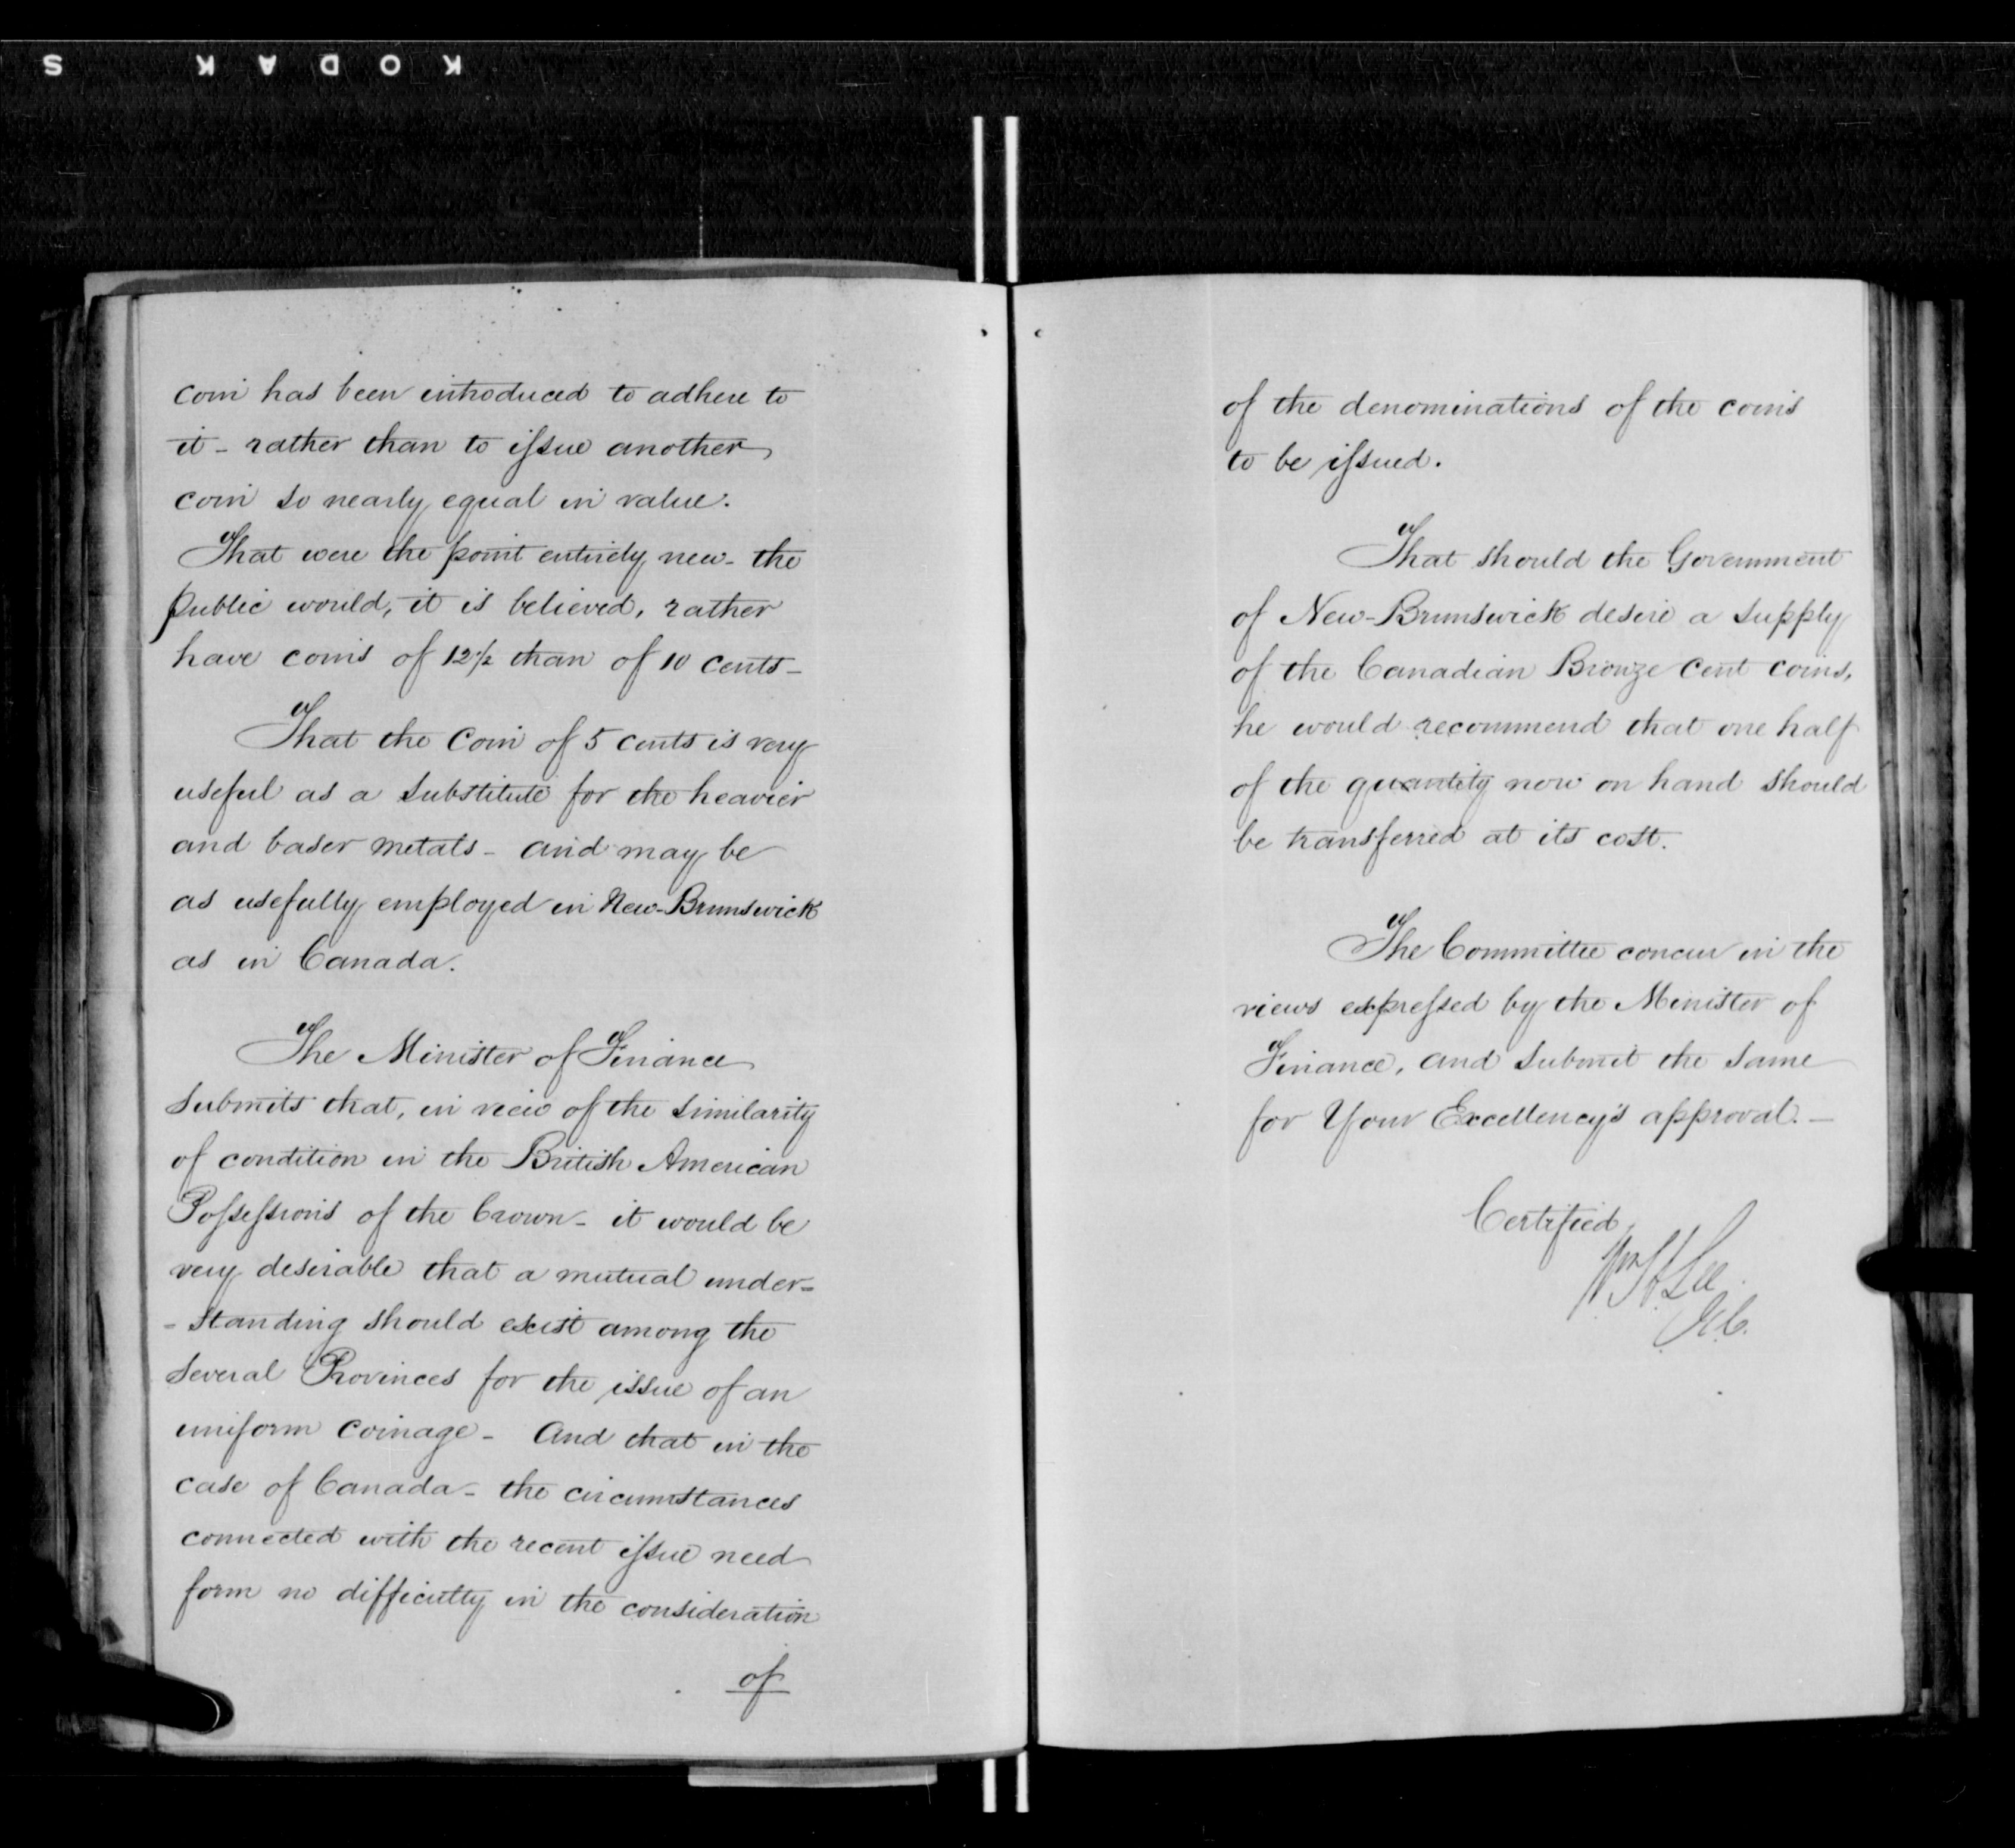 S KODAK
coin has been introduced to adhere to
it - rather than to issue another
coin so nearly equal in value.
That were the point entirely new - the
public would, it is believed, rather
have coins of 12½ than of 10 cents -
That the Coin of 5 cents is very
useful as a substitute for the heavier
and baser metals - and may be
as usefully employed in New-Brunswick
as in Canada.
The Minister of Finance
submits that, in view of the similarity
of condition in the British American
Possessions of the Crown - it would be
very desirable that a mutual under-
-standing should exist among the
several Provinces for the issue of an
uniform coinage - And that in the
case of Canada - the circumstances
connected with the recent issue need
form no difficulty in the consideration
of
of the denominations of the coins
to be issued.
That should the Government
of New-Brunswick desire a supply
of the Canadian Bronze Cent coins,
he would recommend that one half
of the quantity now on hand should
be transferred at its cost.
The Committee concur in the
views expressed by the Minister of
Finance, and submit the same
for Your Excellency's approval. -
Certified,
Wm H. Lee